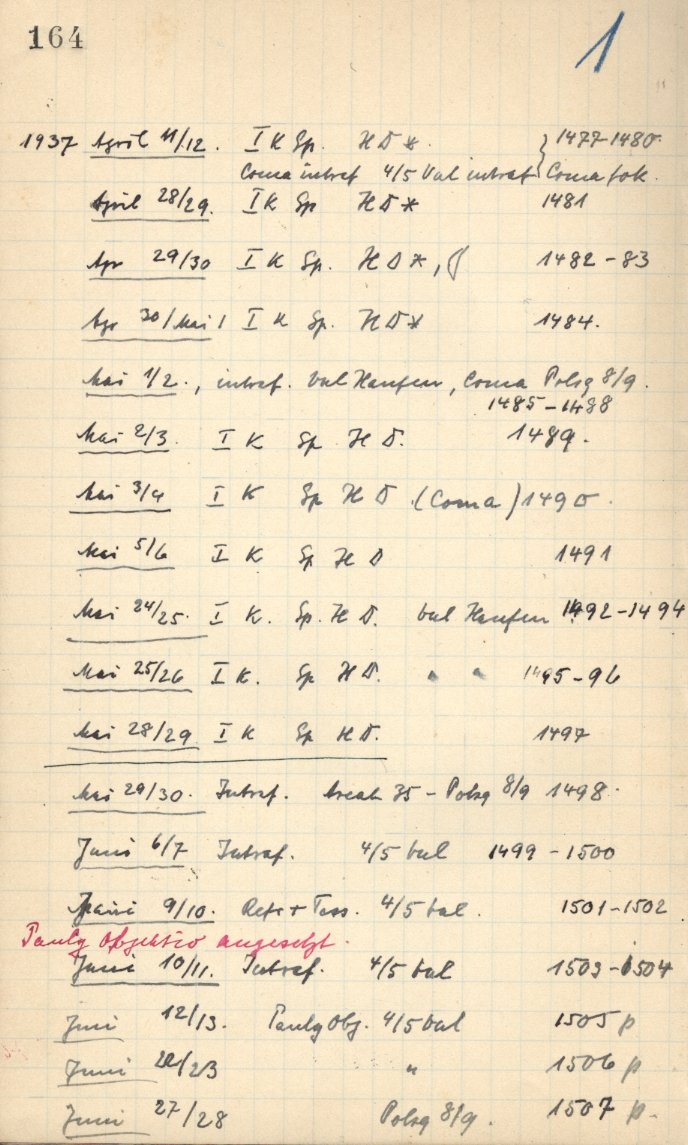 164
1
1937 April 11/12. I K Sp. HD* } 1477-1480.
Coma intraf 4/5 Vul intraf Coma fok.
April 28/29. I K Sp HD* 1481
Apr 29/30 I K Sp. HD*, 1482-83
Apr 30/Mai 1 I K Sp. HD* 1484.
Mai 1/2., intraf. Vul Haufen, Coma Polsq 8/9.
1485-1488
Mai 2/3. I K Sp HD. 1489.
Mai 3/4 I K Sp HD (Coma) 1490.
Mai 5/6 I K Sp HD 1491
Mai 24/25. I K. Sp. HD. Vul Haufen 1492-1494
Mai 25/26 I K. Sp HD. " " 1495-96
Mai 28/29 I K Sp HD. 1497
Mai 29/30. Intraf. 35 - Polsq 8/9 1498.
Juni 6/7 Intraf. 4/5 Vul 1499-1500
Juni 9/10. Tess. 4/5 Vul. 1501-1502
Pauly Objektiv angesetzt.
Juni 10/11. Intraf. 4/5 Vul 1503-1504
Juni 12/13. Pauly Obj. 4/5 Vul 1505 p
Juni 22/23 " 1506 p
Juni 27/28 Polsq 8/9. 1507 p.